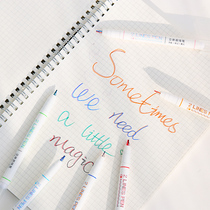 Sometimes
we need
a little
magic